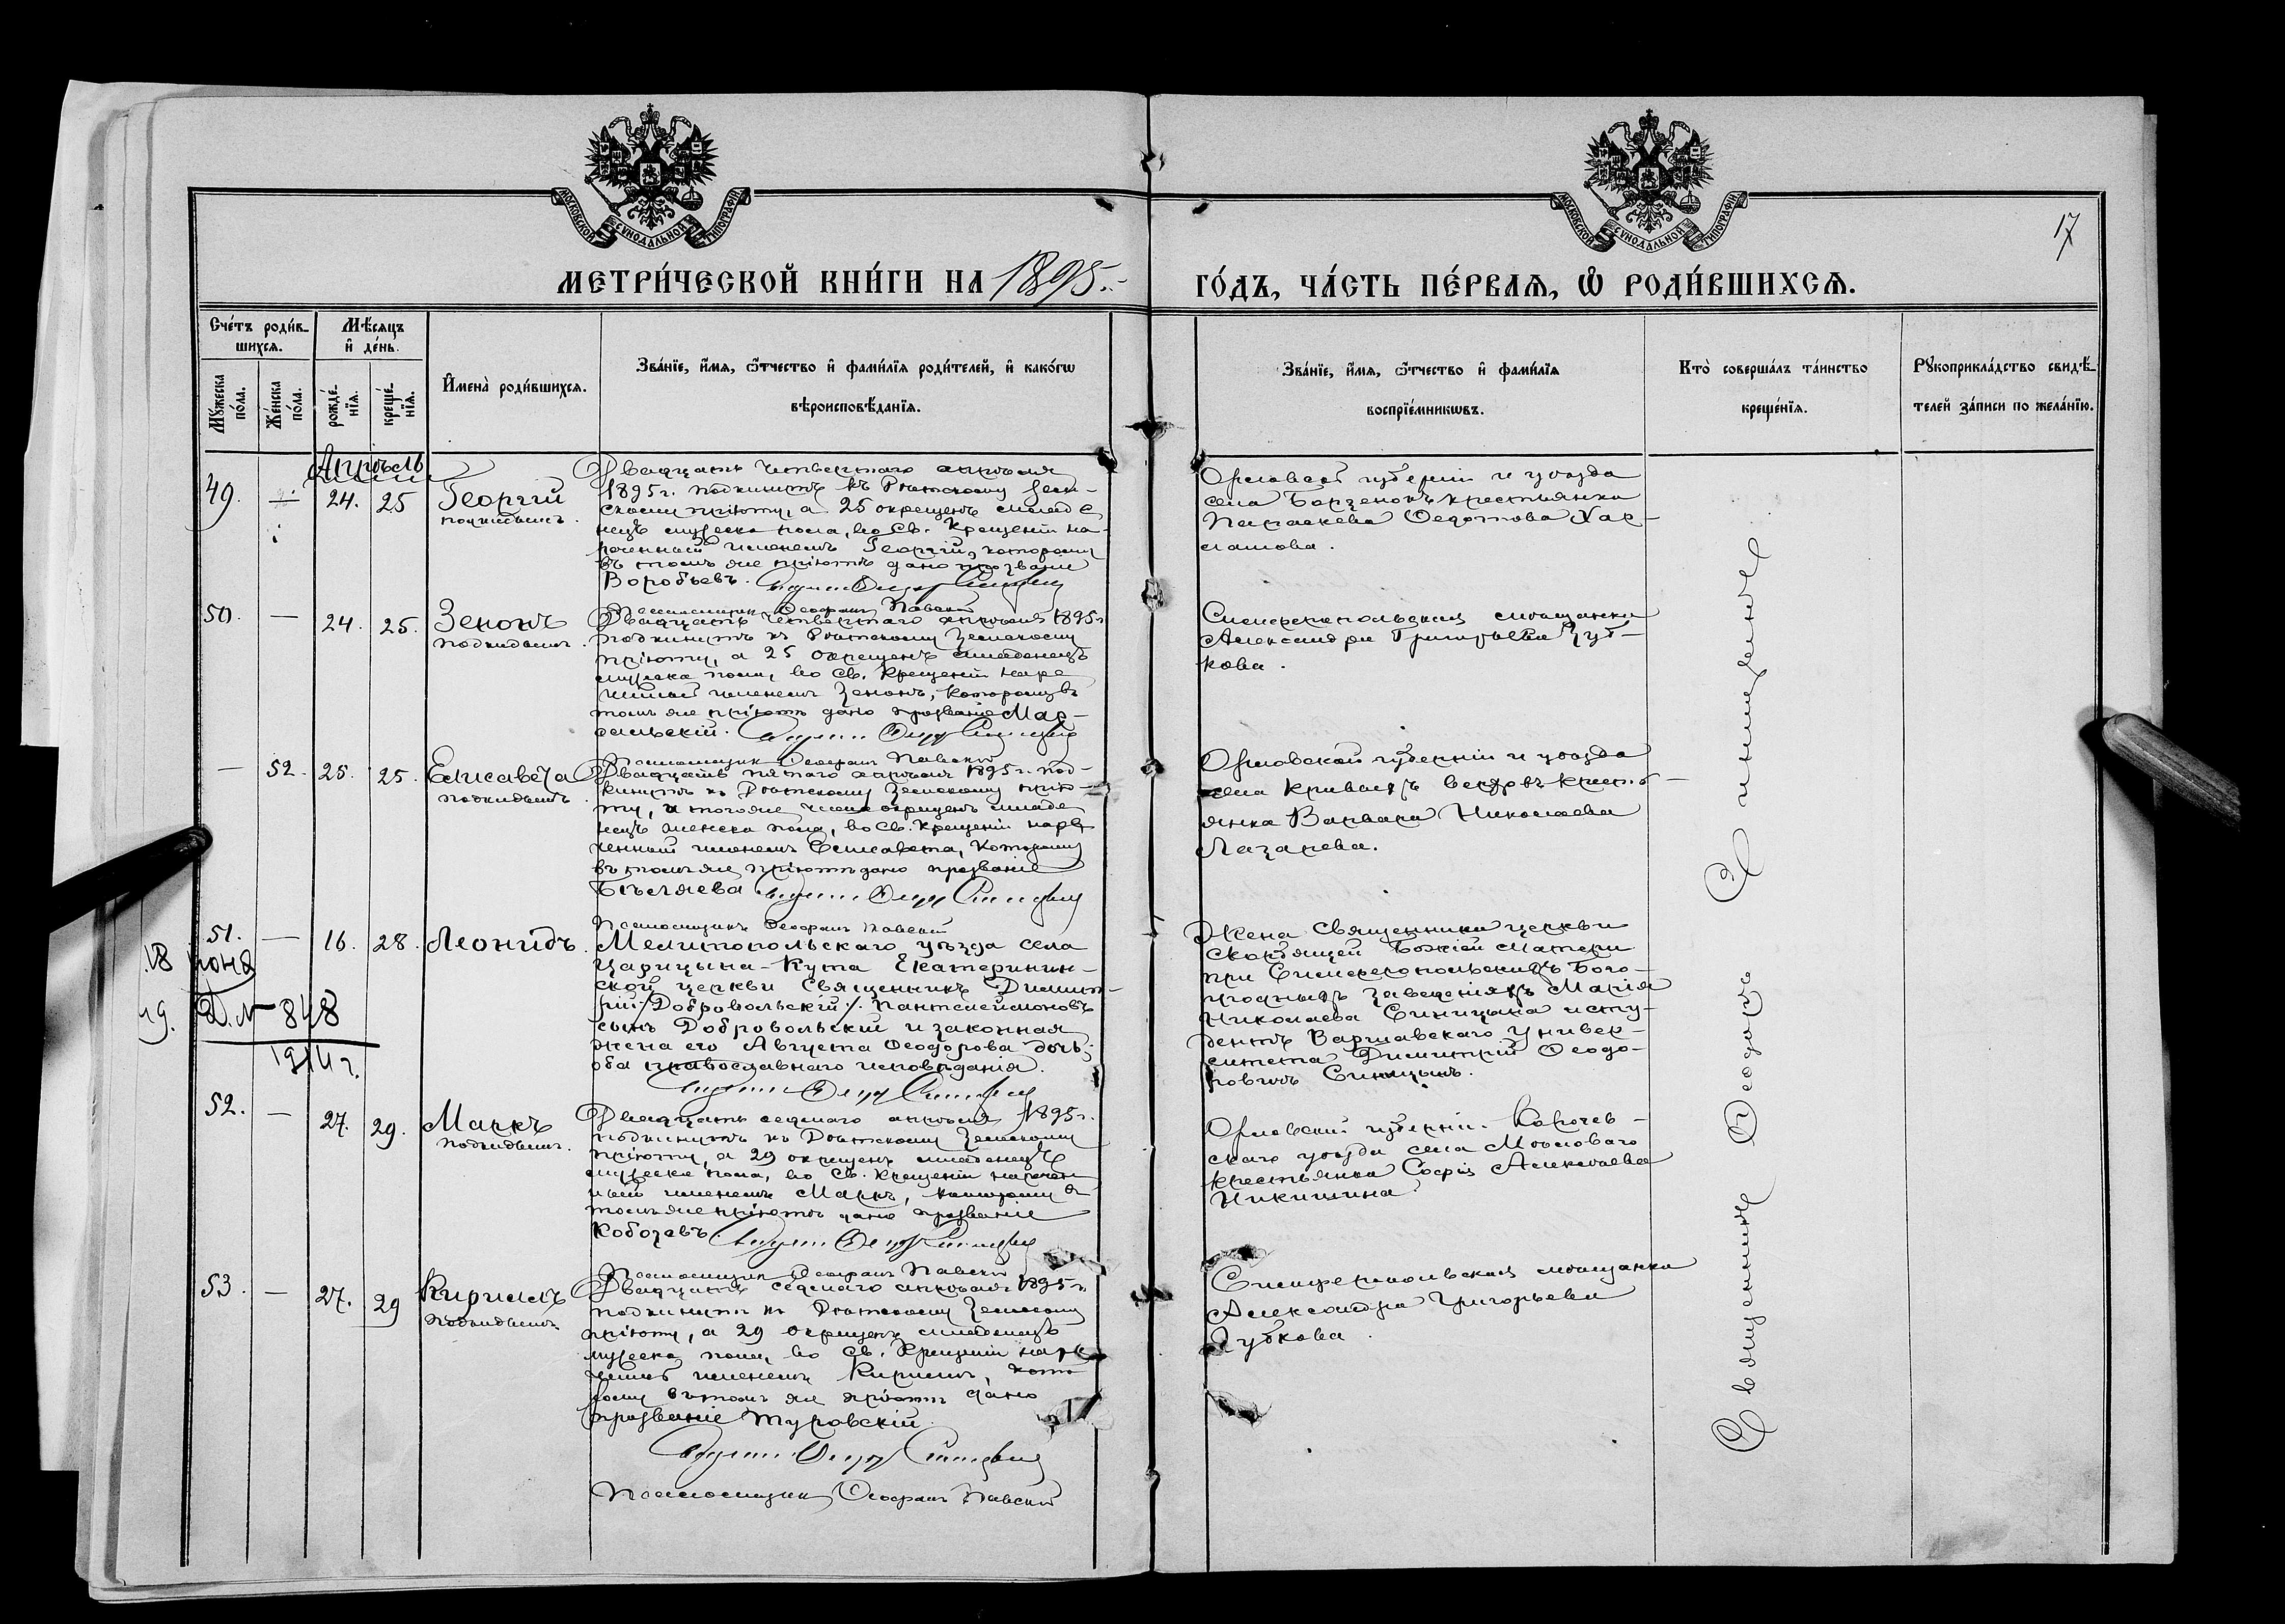 МОСКОВСКОЙ СѴНОДАЛЬНОЙ ТИПОГРАФІИ
МОСКОВСКОЙ СѴНОДАЛЬНОЙ ТИПОГРАФІИ
17
МЕТРИ́ЧЕСКОЙ КНИ́ГИ НА 1895.
ГО́ДЪ, ЧА́СТЬ ПЕ́РВАѦ, Ѽ РОДИ́ВШИХСѦ.
Сче́тъ роди́в-
шихсѧ.
Мꙋ́жеска
по́ла.
Же́нска
по́ла.
Мѣ́сяцъ
и҆ де́нь.
рожде́-
нїѧ.
креще́-
нїѧ.
И҆мена̀ роди́вшихсѧ.
Зва́нїе, и҆́мѧ, ѻ҆́тчество и҆ фами́лїѧ роди́телей, и҆ како́гѡ
вѣроисповѣ́данїѧ.
Зва́нїе, и҆́мѧ, ѻ҆́тчество и҆ фами́лїѧ
воспрїе́мникѡвъ.
Кто̀ соверша́лъ та́инство
креще́нїѧ.
Рꙋкоприкла́дство свидѣ́-
телей за́писи по жела́нїю.
Апрѣль
49. — 24. 25 Георгій
подкидышъ.
Двадцать четвертаго апрѣля
1895 г. подкинутъ къ Дѣтскому Зем-
скому пріюту, а 25 окрещенъ младе
нецъ мужеска пола, во Св. Крещеніи на-
реченный именемъ Георгій, которому
въ томъ же пріютѣ дано прозваніе
Воробьевъ.
Орловской губерніи и уѣзда
села Борзенокъ крестьянка
Параскева Федотова Хар-
ламова.
50. — 24. 25. Зенонъ
подкидышъ.
Псаломщикъ Феофанъ Павскій
Двадцать четвертаго апрѣля 1895 г.
подкинутъ къ Дѣтскому Земскому
пріюту, а 25 окрещенъ младенецъ
мужеска пола, во Св. Крещеніи наре
ченный именемъ Зенонъ, которому въ
томъ же пріютѣ дано прозваніе Мар-
сельскій.
Симферопольская мѣщанка
Александра Григорьева Зуб-
кова.
— 52. 25. 25. Елисавета
подкидышъ
Псаломщикъ Феофанъ Павскій
Двадцать пятаго апрѣля 1895 г. под-
кинутъ къ Дѣтскому Земскому прію-
ту, и того же числа окрещенъ младе
нецъ женска пола, во Св. Крещеніи наре
ченный именемъ Елисавета, которому
въ томъ же пріютѣ дано прозваніе
Бѣляева
Орловской губерніи и уѣзда
села Кривыхъ Верховъ крест-
янка Варвара Николаева
Лазарева.
51. — 16. 28. Леонидъ.
18 іюня
Д. № 848
1914 г.
Псаломщикъ Феофанъ Павскій
Мелитопольскаго уѣзда села
Царицына-Кута Екатеринин-
ской церкви Священникъ Димит-
рій /Добровольскій/. Пантелеймоновъ
сынъ Добровольскій и законная
жена его Августа Феодорова дочь;
оба православнаго исповѣданія.
Жена Священника церкви
Скорбящей Божіей Матери
при Симферопольскихъ Бого-
угодныхъ заведеніяхъ Марія
Николаева Синицына и сту-
дентъ Варшавскаго Универ-
ситета Димитрій Феодо-
ровичъ Синицынъ.
52. — 27. 29. Маркъ
подкидышъ.
Двадцать седьмаго апрѣля 1895 г.
подкинутъ къ Дѣтскому Земскому
пріюту, а 29 окрещенъ младенецъ
мужеска пола, во Св. Крещеніи наречен
ный именемъ Маркъ, которому въ
томъ же пріютѣ дано прозваніе
Кобозевъ.
Орловской губерніи. Карачев-
скаго уѣзда села Мѣловаго
крестьянка Софія Алексѣева
Никишина
53. — 27. 29 Кириллъ
подкидышъ.
Псаломщикъ Феофанъ Павскій
Двадцать седьмаго апрѣля 1895 г.
подкинутъ къ Дѣтскому Земскому
пріюту, а 29 окрещенъ младенецъ
мужеска пола, во Св. Крещеніи наре
ченный именемъ Кириллъ, кото
рому въ томъ же пріютѣ дано
прозваніе Туровскій.
Псаломщикъ Феофанъ Павскій
Симферопольская мѣщанка
Александра Григорьева
Зубкова.
Священникъ Феодоръ Синицынъ